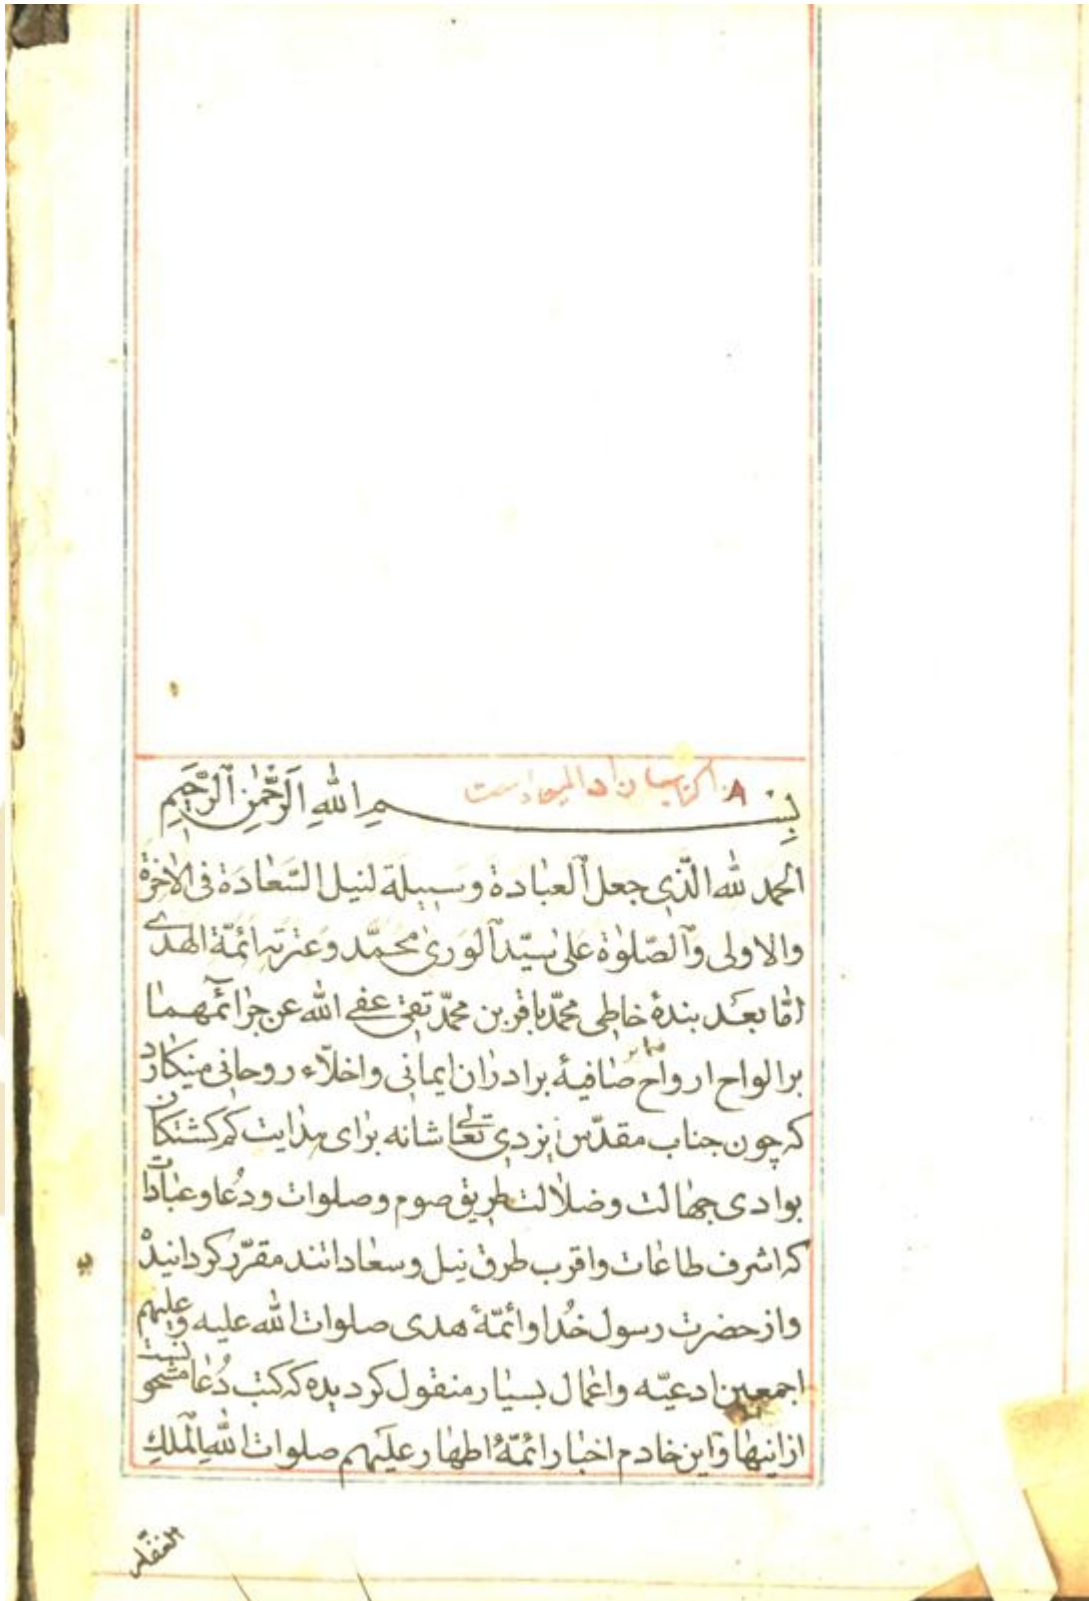 بسم الله الرحمن الرحيم
الحمد لله الّذی جعل العبادة وسیلة لنیل السّعادة فی الاخرة
والاولی والصّلوة علی سیّد الوری محمّد وعترته ائمّة الهدی
امّا بعد بندهٔ خاطی محمّد باقر بن محمّد تقی عفی الله عن جرائمهما
بر الواح ارواح صافیهٔ برادران ایمانی واخلاّء روحانی مینکارد
که چون جناب مقدّس ایزدی تعالی شانه برای هدایت کم کشتکان
بوادی جهالت وضلالت طریق صوم وصلوات ودعا وعبادات
که اشرف طاعات واقرب طرق نیل وسعاداتند مقرّر کردانیده
واز حضرت رسول خدا وائمّهٔ هدی صلوات الله علیه وعلیهم
اجمعین ادعیّه واعمال بسیار منقول کردیده که کتب دعا مشحونست
از اینها واین خادم اخبار ائمّهٔ اطهار علیهم صلوات الله الملك
الغفّار